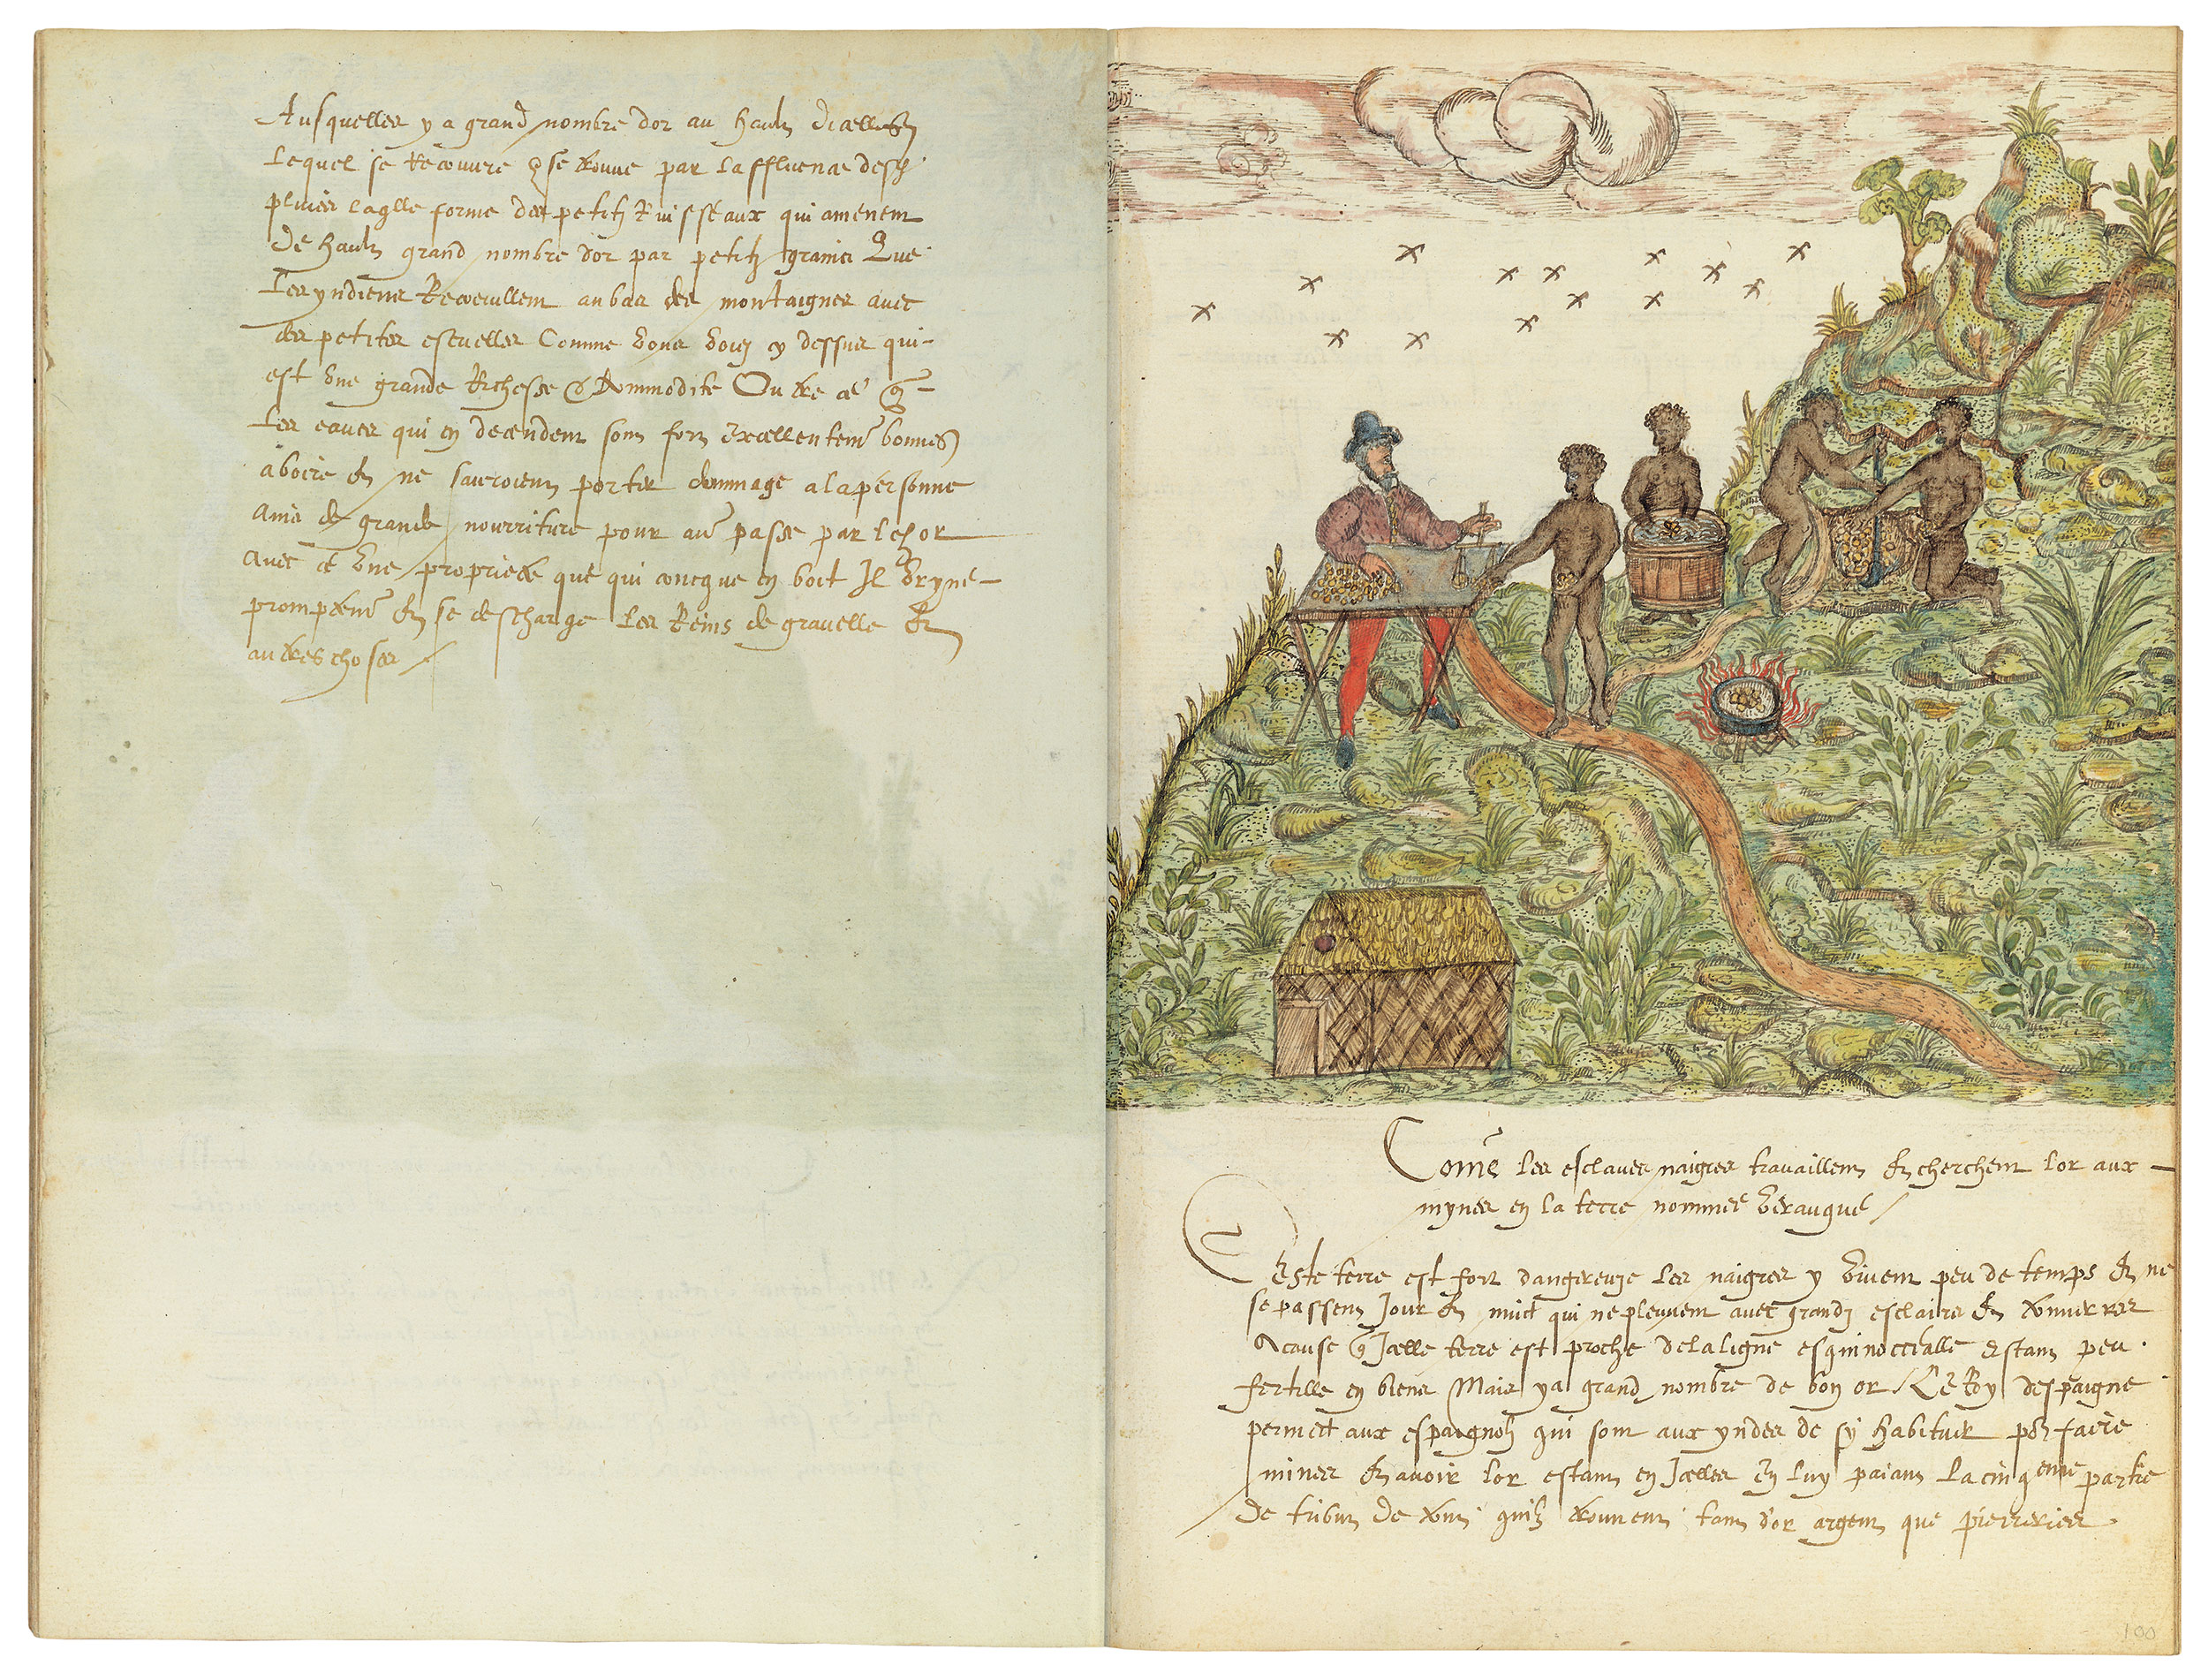 Ausquelles y a grand nombre dor au hault dicelles
lequel se recouvre & se trouve par laffluence des
pluies laqlle forme des petitz Ruisseaux qui amenent
de hault grand nombre dor par petitz grains Que
les yndiens Recoeuillent au bas des montaignes avec
des petites escuelles Comme vous voiez cy dessus qui
est une grande Richesse & commodite Oultre ce q
les eaues qui en decendent sont fort excellentemt bonnes
a boire et ne sauroient porter dommage a la personne
ains de grande nourriture pour avr passe par lesd or
avec ce une propriete que quiconcque en boit Il uryne
promptemt et se descharge les Reins de gravelle et
autres choses
Come les esclaves naigres travaillent et cherchent lor aux
mynes en la terre nommee veraugue
Ceste terre est fort dangereuze les naigres y vivent peu de temps et ne
se passent Jour et nuict qui ne pleuvent avec grandz esclairs et tonnerres
Acause q Jcelle terre est proche de la ligne esquinoctialle Estant peu
fertille en biens Mais y a grand nombre de bon or Le Roy despaigne
permect aux espaignolz qui sont aux yndes de sy habituer por faire
mines et avoir lor estant en Jcelles En luy paiant la cinqeme partie
de tribut de tout quilz trouvent tant dor argent que pierreries
100